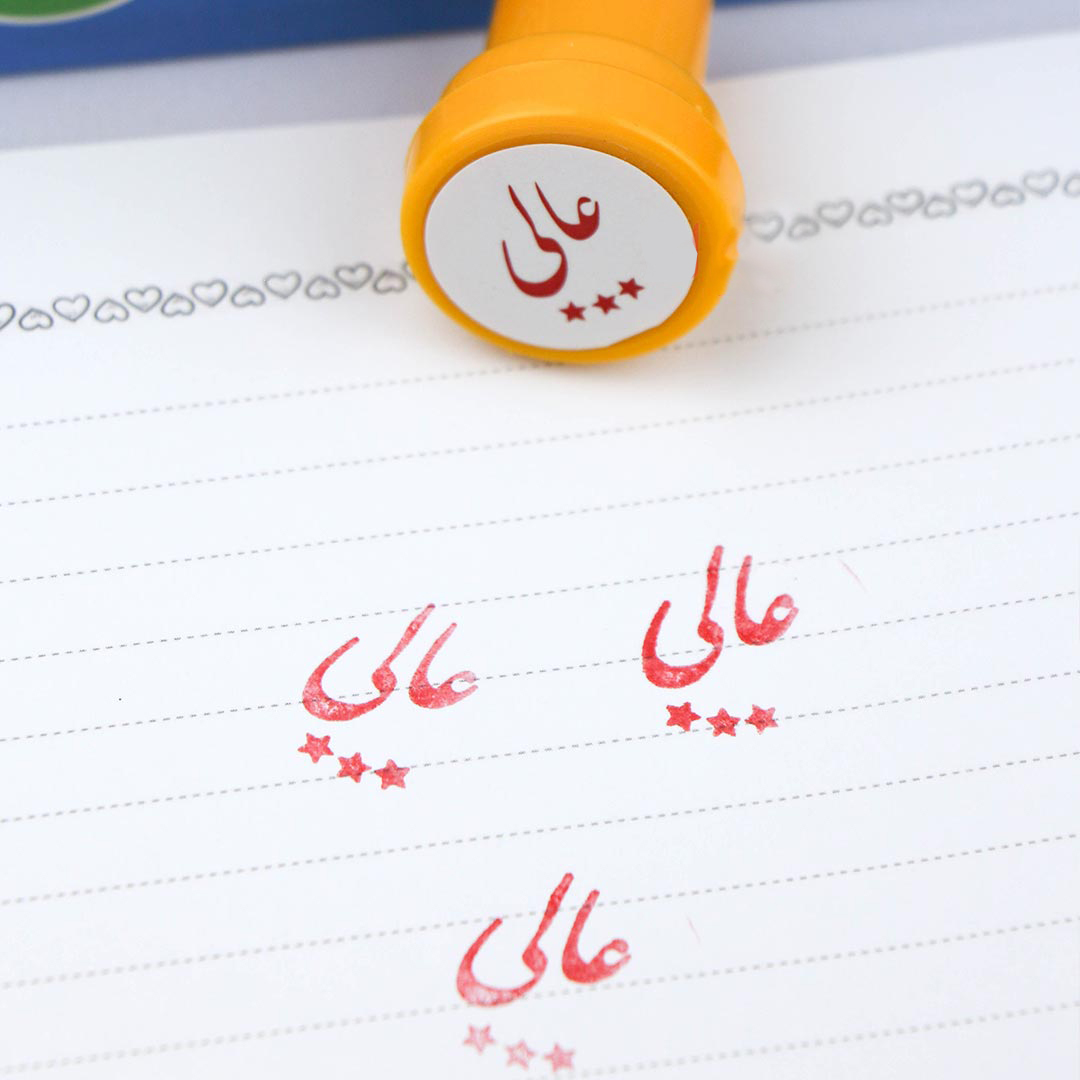 عالی
عالی
عالی
عالی